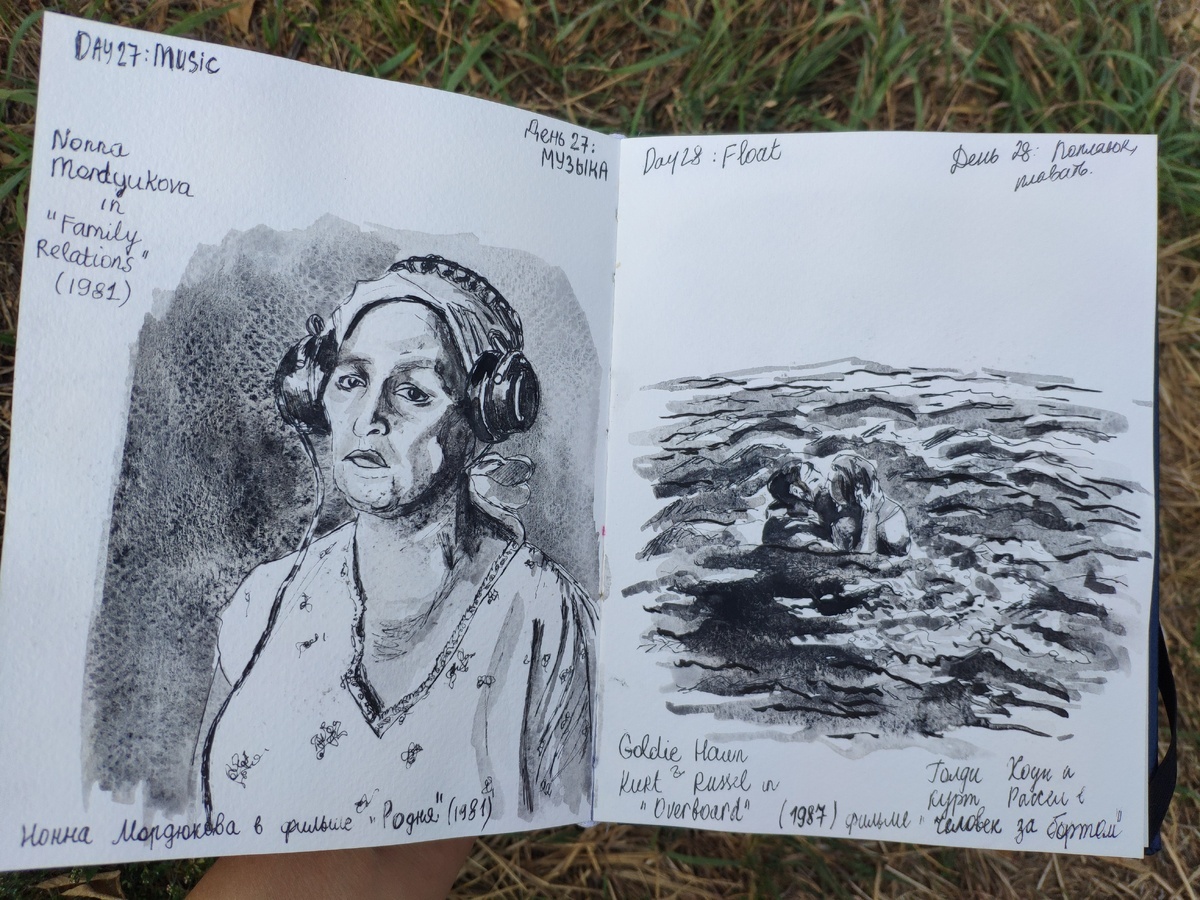 DAY 27: Music
Nonna
Mordyukova
in
"Family
Relations"
(1981)
День 27:
МУЗЫКА
Нонна Мордюкова в фильме "Родня" (1981)
Day 28: Float
День 28: Поплавок,
плавать.
Goldie Hawn
&
Kurt Russel in
"Overboard" (1987)
Голди Хоун и
Курт Рассел в
фильме "Человек за бортом"